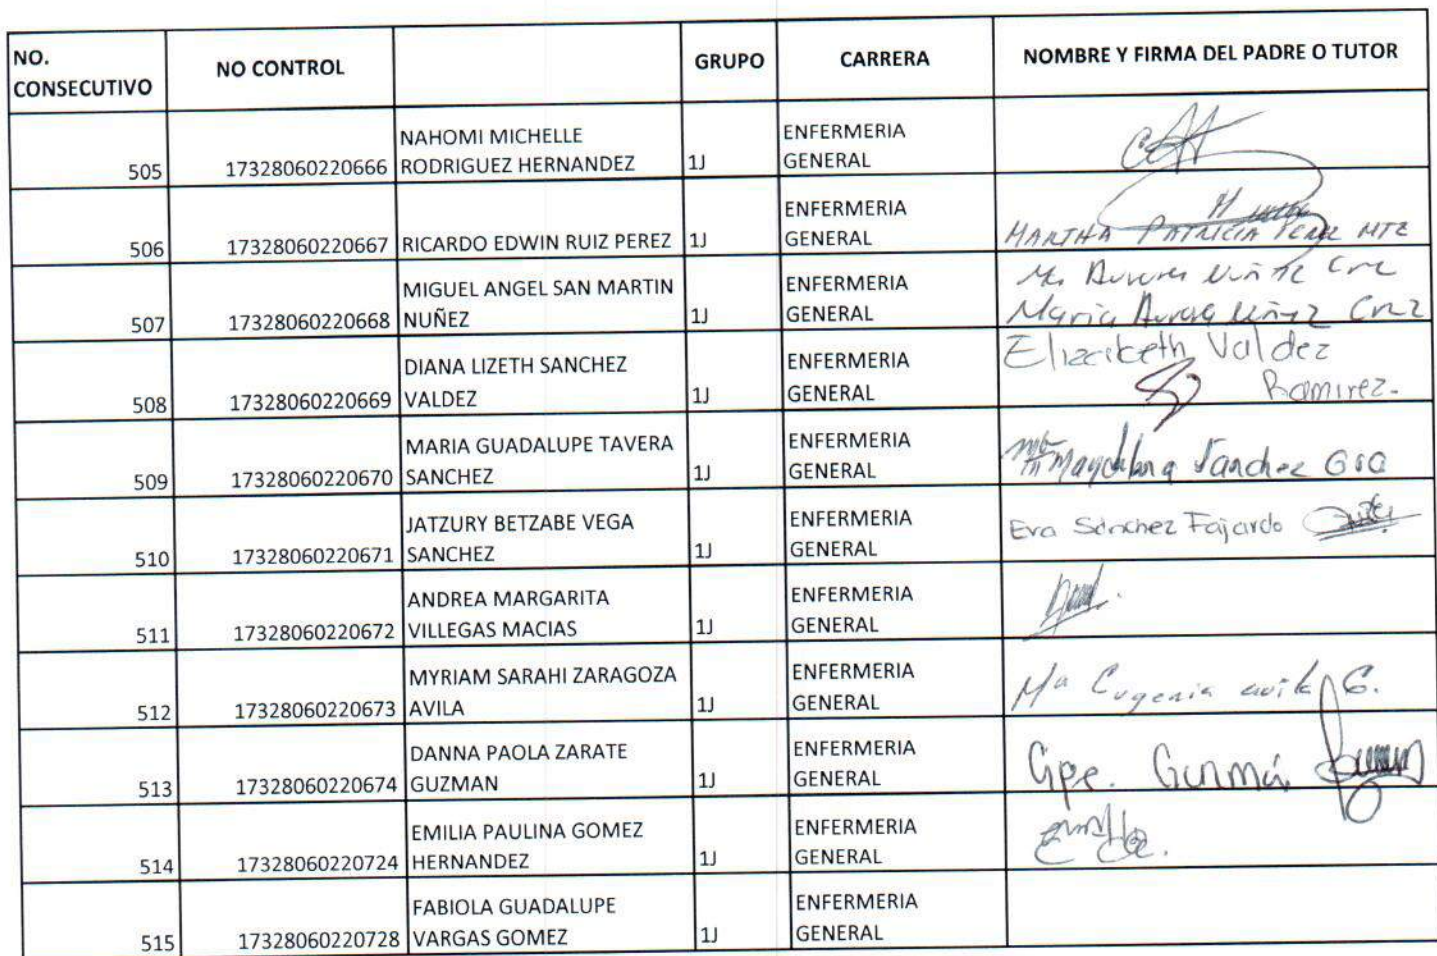 NO. CONSECUTIVO NO CONTROL GRUPO CARRERA NOMBRE Y FIRMA DEL PADRE O TUTOR
505 17328060220666 NAHOMI MICHELLE RODRIGUEZ HERNANDEZ 1J ENFERMERIA GENERAL
506 17328060220667 RICARDO EDWIN RUIZ PEREZ 1J ENFERMERIA GENERAL MARTHA PATRICIA PEREZ MTZ
507 17328060220668 MIGUEL ANGEL SAN MARTIN NUÑEZ 1J ENFERMERIA GENERAL Maria Aurora Cruz
508 17328060220669 DIANA LIZETH SANCHEZ VALDEZ 1J ENFERMERIA GENERAL Elizabeth Valdez Ramirez.
509 17328060220670 MARIA GUADALUPE TAVERA SANCHEZ 1J ENFERMERIA GENERAL Magdalena Sanchez
510 17328060220671 JATZURY BETZABE VEGA SANCHEZ 1J ENFERMERIA GENERAL Eva Sánchez Fajardo
511 17328060220672 ANDREA MARGARITA VILLEGAS MACIAS 1J ENFERMERIA GENERAL
512 17328060220673 MYRIAM SARAHI ZARAGOZA AVILA 1J ENFERMERIA GENERAL Ma Eugenia avila G.
513 17328060220674 DANNA PAOLA ZARATE GUZMAN 1J ENFERMERIA GENERAL Gpe.
514 17328060220724 EMILIA PAULINA GOMEZ HERNANDEZ 1J ENFERMERIA GENERAL
515 17328060220728 FABIOLA GUADALUPE VARGAS GOMEZ 1J ENFERMERIA GENERAL